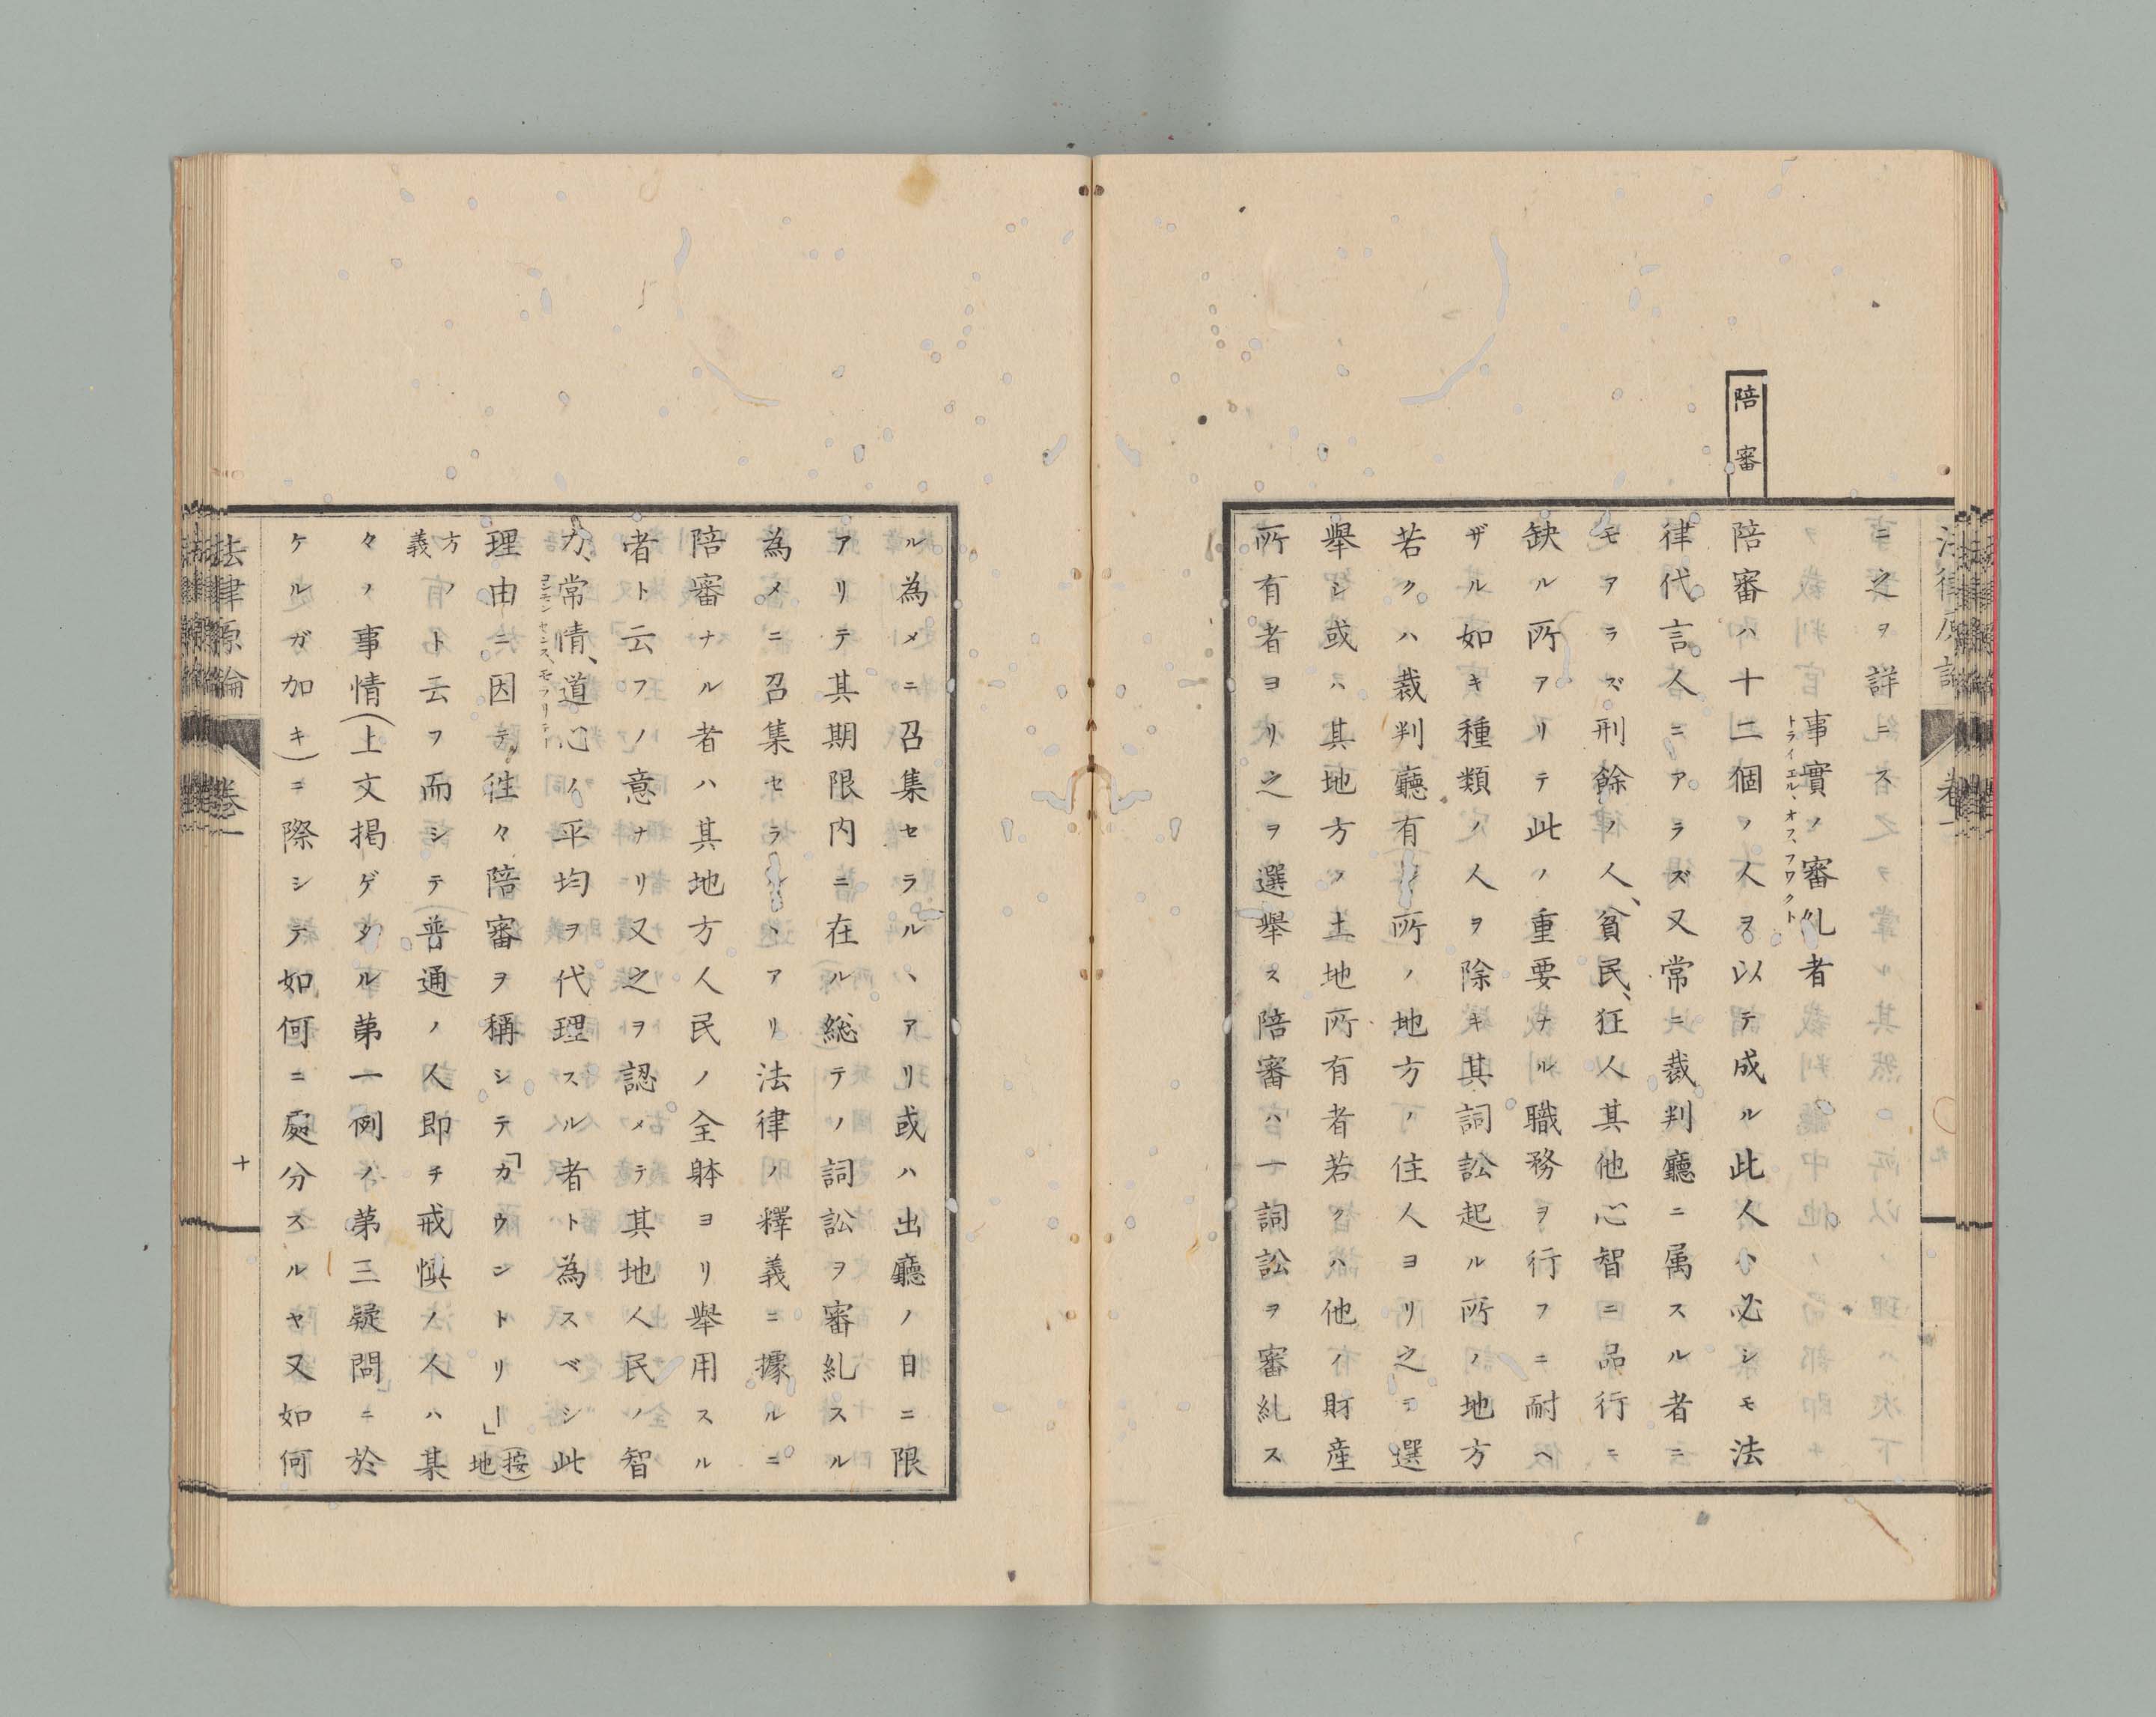 陪審
ニ之ヲ詳ニス
事實ノ審糺者
トライエル、オフ、フワクト
陪審ハ十二個ノ人ヲ以テ成ル此人ハ必シモ法
律代言人ニアラズ又常ニ裁判廳ニ属スル者ニ
モアラズ刑餘ノ人、貧民、狂人其他心智ニ品行ニ
缺ル所アリテ此ノ重要ナル職務ヲ行フニ耐ヘ
ザル如キ種類ノ人ヲ除キ其詞訟起ル所ノ地方
若クハ裁判廳有ル所ノ地方ノ住人ヨリ之ヲ選
擧シ或ハ其地方ノ土地所有者若クハ他ノ財産
所有者ヨリ之ヲ選擧ス陪審ハ一詞訟ヲ審糺ス
ル為メニ召集セラルヽアリ或ハ出廳ノ日ニ限
アリテ其期限内ニ在ル総テノ詞訟ヲ審糺スル
為メニ召集セラルヽアリ法律ノ釋義ニ據ルニ
陪審ナル者ハ其地方人民ノ全躰ヨリ擧用スル
者ト云フノ意ナリ又之ヲ認メテ其地人民ノ智
力、常情、道心ノ平均ヲ代理スル者ト為スベシ此
コンモンセンス、モラリテー
理由ニ因テ徃々陪審ヲ稱シテ「カウントリー」(按)地
方ノ義ト云フ而シテ普通ノ人即チ戒愼ノ人ハ某
々ノ事情(上文掲ゲタル第一例ノ第三疑問ニ於
ケルガ如キ)ニ際シテ如何ニ處分スルヤ又如何
法律原論
卷一
十